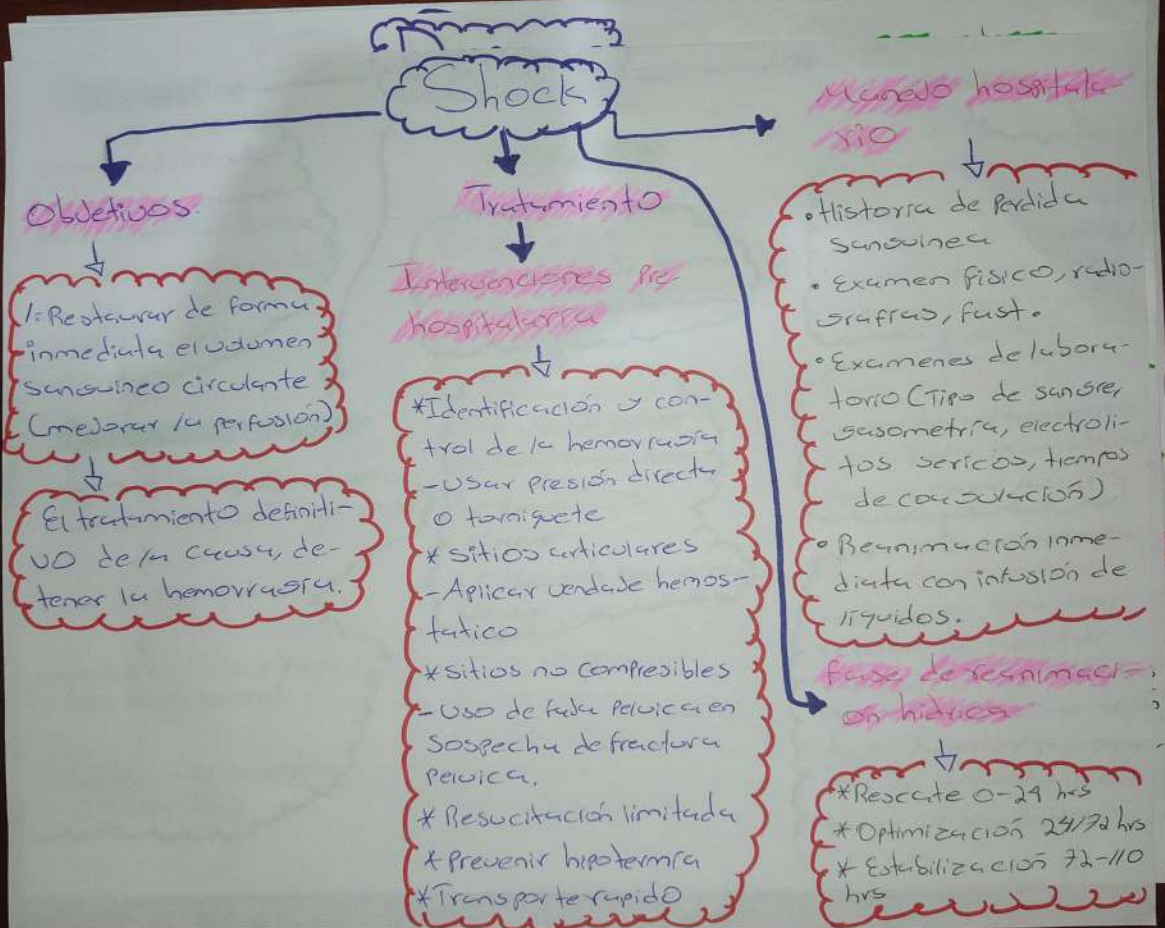 Shock
Objetivos.
1: Restaurar de forma
inmediata el volumen
sanguineo circulante
(mejorar la perfusión)
El tratamiento definiti-
vo de la causa, de-
tener la hemorragia.
Tratamiento
Intervenciones Pre
hospitalarria
*Identificación y con-
trol de la hemorragia
-Usar presión directa
o torniquete
* sitios articulares
-Aplicar vendaje hemos-
tatico
* sitios no compresibles
-Uso de faja pelvica en
sospecha de fractura
pelvica.
* Resucitación limitada
* prevenir hipotermia
*Transporte rapido
Manejo hospitala-
rio
• Historia de Perdida
sanguinea
• Examen fisico, radio-
grafias, fast.
• Examenes de labora-
torio (Tipo de sangre,
gasometría, electroli-
tos sericos, tiempos
de coagulación)
• Reanimación inme-
diata con infusión de
liquidos.
fases de reanimaci-
on hidrica
*Rescate 0-24 hrs
* Optimización 24/72 hrs
* Estabilización 72-110
hrs